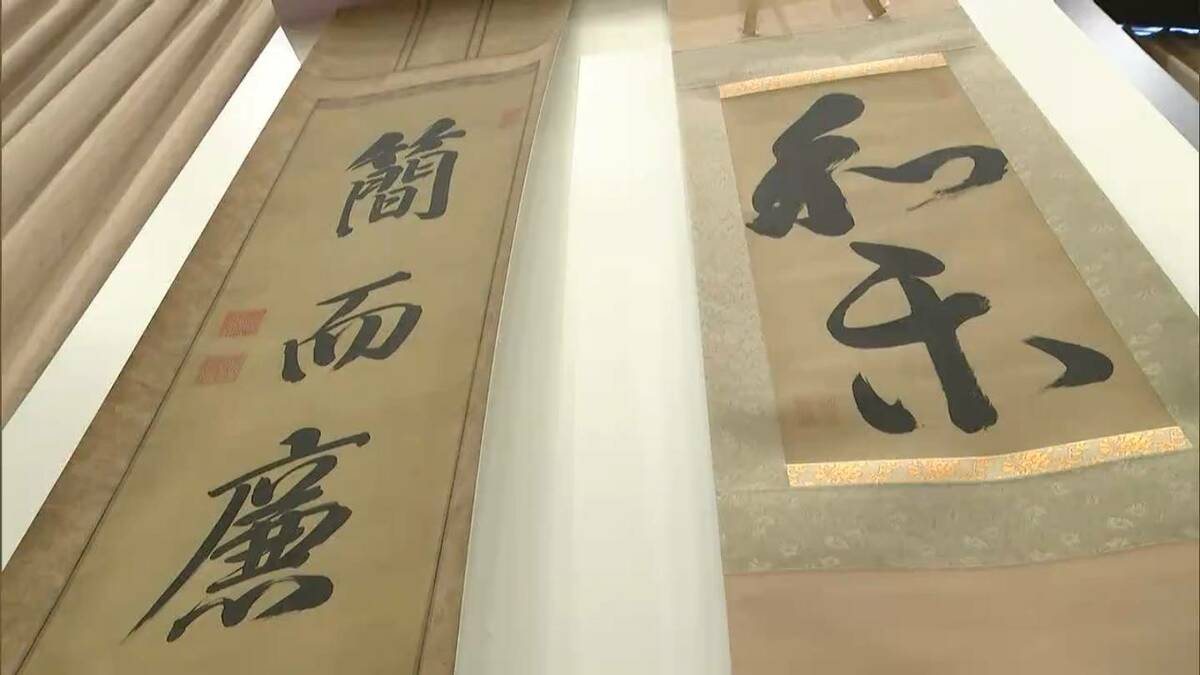 簡而廉
和乐